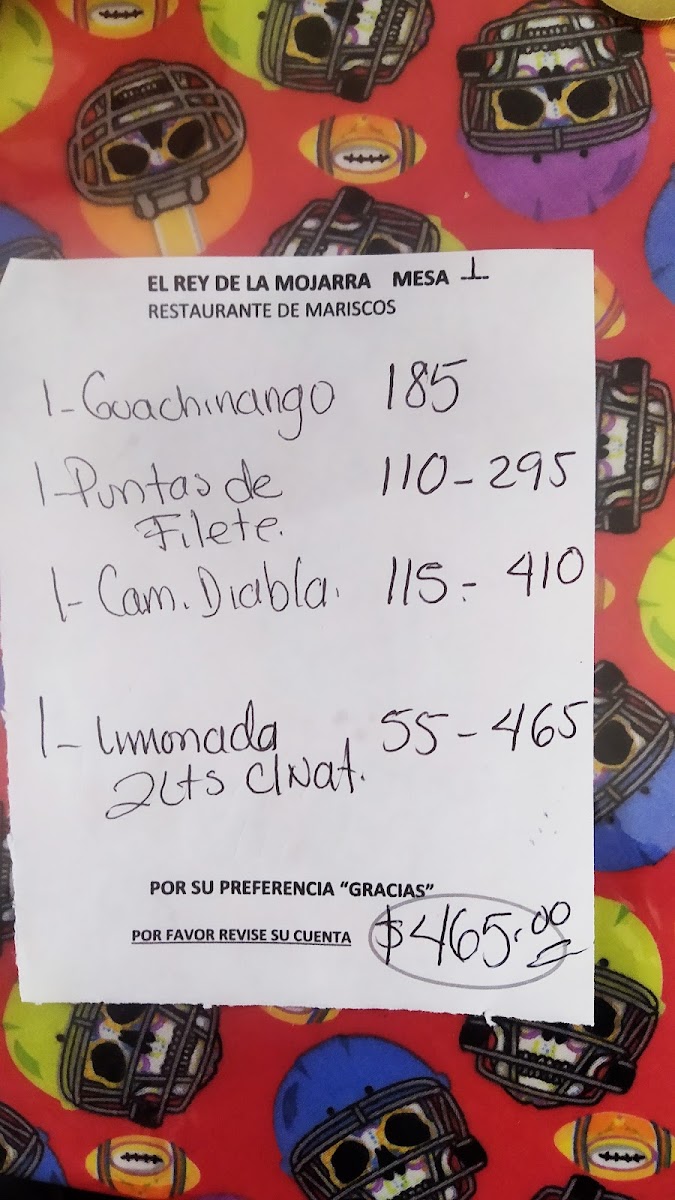 EL REY DE LA MOJARRA MESA 1
RESTAURANTE DE MARISCOS
1-Guachinango 185
1-Puntas de 110-295
Filete.
1-Cam. Diabla. 115- 410
1-Limonada 55-465
2Lts c/Nat.
POR SU PREFERENCIA “GRACIAS”
POR FAVOR REVISE SU CUENTA $465.00